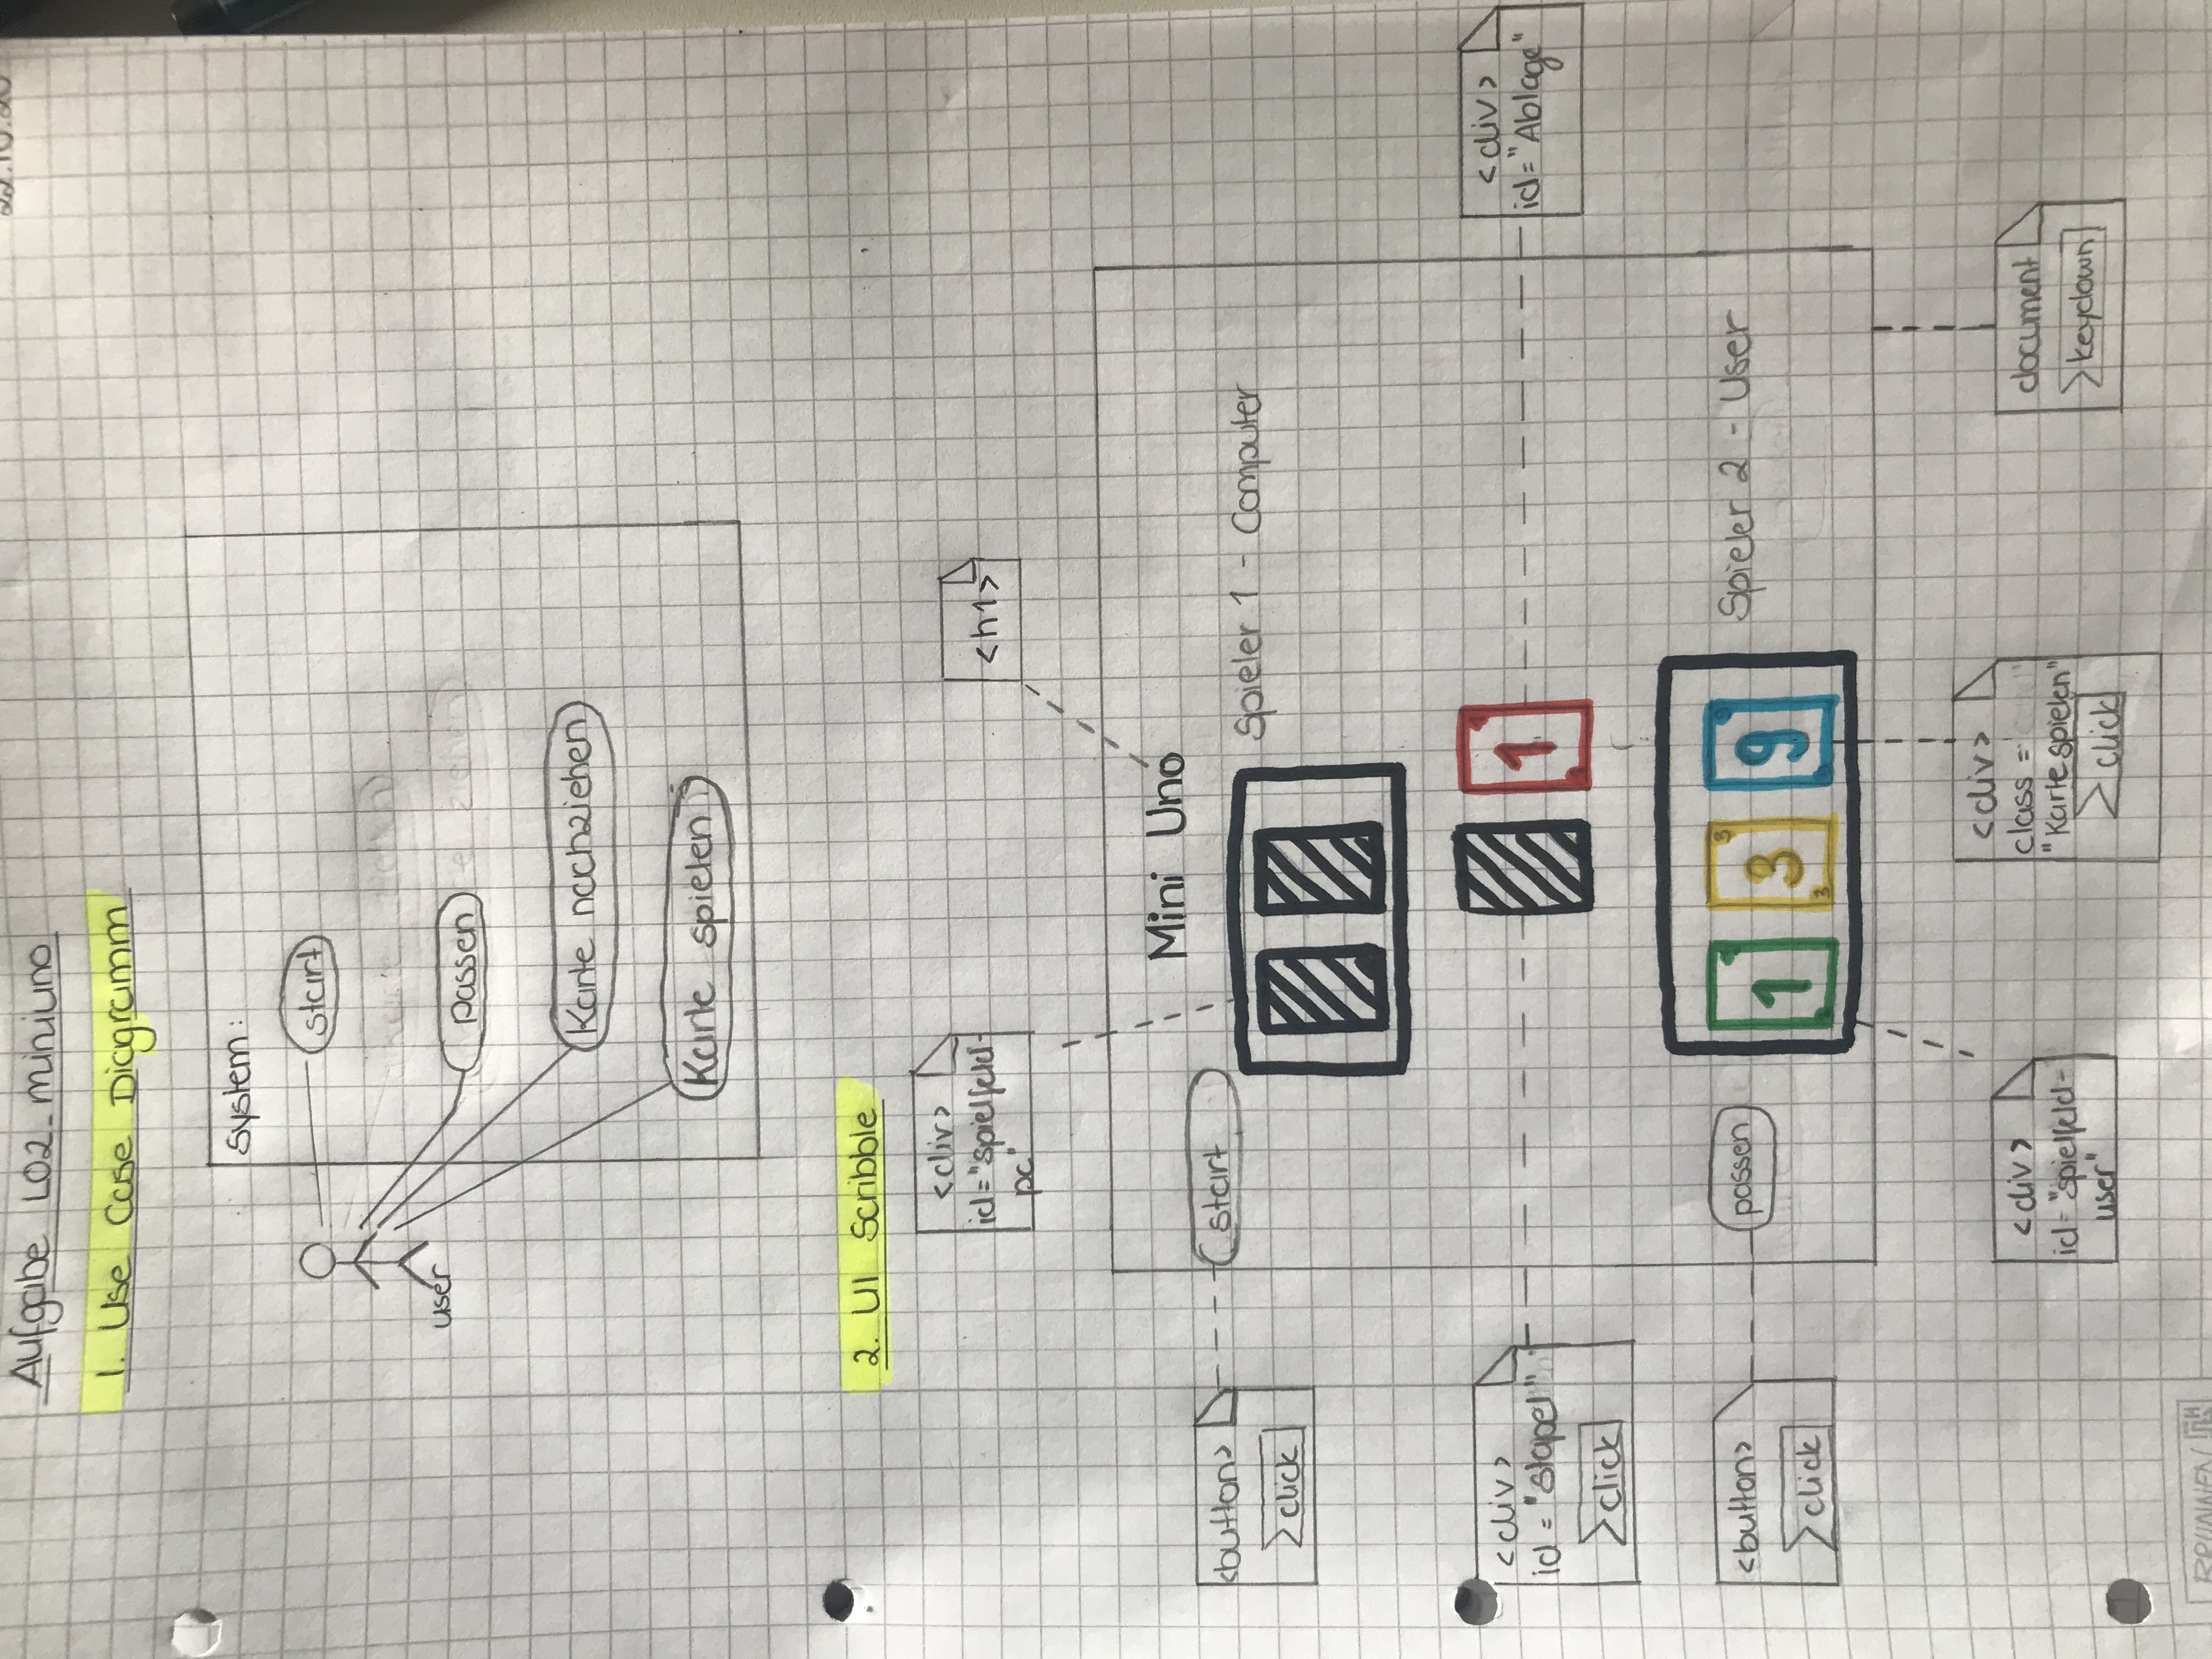 22.10.20
Aufgabe L02_miniuno
1. Use Case Diagramm
System:
start
user
passen
Karte nachziehen
Karte spielen
2. UI Scribble
<div>
id="spielfeld-
pc"
<h1>
Mini Uno
<button>
click
start
Spieler 1 - Computer
<div>
id = "stapel"
click
1
<div>
id="Ablage"
<button>
click
passen
1
3
3
3
9
Spieler 2 - User
<div>
id="spielfeld-
user"
<div>
class =
"Karte spielen"
click
document
keydown
BRUNNEN